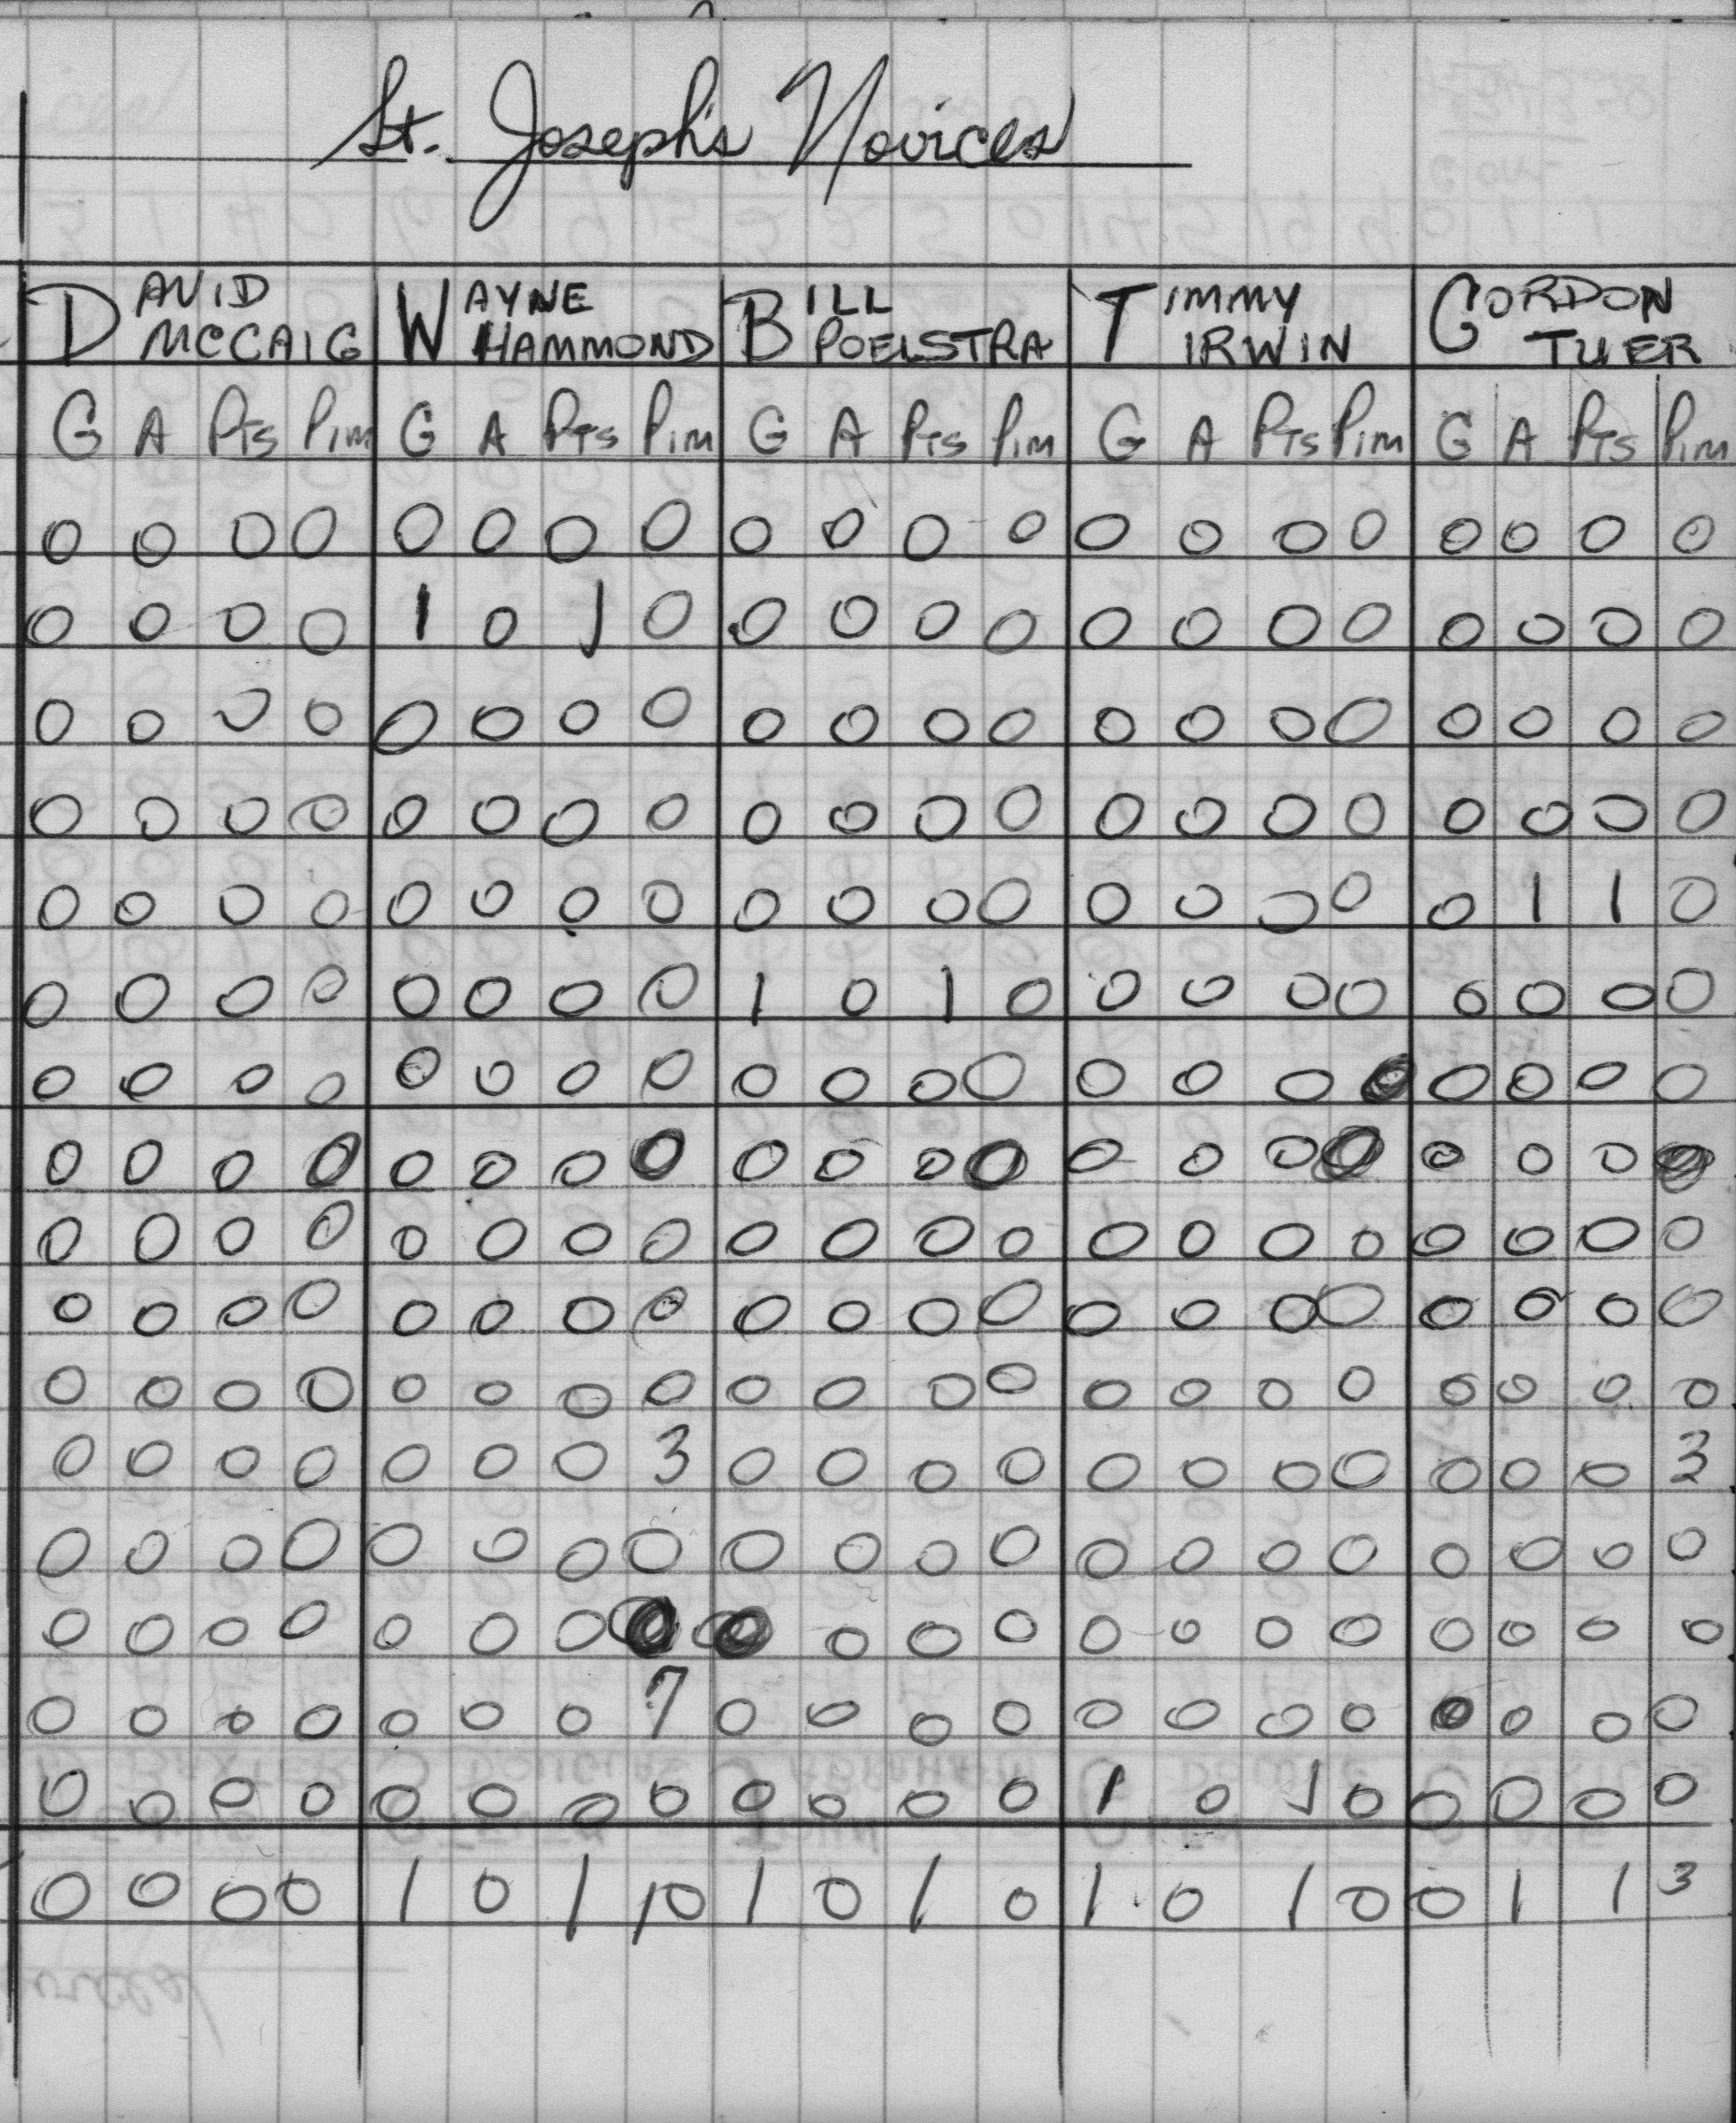 St. Joseph's Novices
DAVID MCCAIG WAYNE HAMMOND BILL POELSTRA TIMMY IRWIN GORDON TUER
G A Pts Pim G A Pts Pim G A Pts Pim G A Pts Pim G A Pts Pim
0 0 0 0 0 0 0 0 0 0 0 0 0 0 0 0 0 0 0 0
0 0 0 0 1 0 1 0 0 0 0 0 0 0 0 0 0 0 0 0
0 0 0 0 0 0 0 0 0 0 0 0 0 0 0 0 0 0 0 0
0 0 0 0 0 0 0 0 0 0 0 0 0 0 0 0 0 0 0 0
0 0 0 0 0 0 0 0 0 0 0 0 0 0 0 0 0 1 1 0
0 0 0 0 0 0 0 0 1 0 1 0 0 0 0 0 0 0 0 0
0 0 0 0 0 0 0 0 0 0 0 0 0 0 0 0 0 0 0 0
0 0 0 0 0 0 0 0 0 0 0 0 0 0 0 0 0 0 0 0
0 0 0 0 0 0 0 0 0 0 0 0 0 0 0 0 0 0 0 0
0 0 0 0 0 0 0 0 0 0 0 0 0 0 0 0 0 0 0 0
0 0 0 0 0 0 0 0 0 0 0 0 0 0 0 0 0 0 0 0
0 0 0 0 0 0 0 3 0 0 0 0 0 0 0 0 0 0 0 3
0 0 0 0 0 0 0 0 0 0 0 0 0 0 0 0 0 0 0 0
0 0 0 0 0 0 0 0 0 0 0 0 0 0 0 0 0 0 0 0
0 0 0 0 0 0 0 7 0 0 0 0 0 0 0 0 0 0 0 0
0 0 0 0 0 0 0 0 0 0 0 0 1 0 1 0 0 0 0 0
0 0 0 0 1 0 1 10 1 0 1 0 1 0 1 0 0 1 1 3